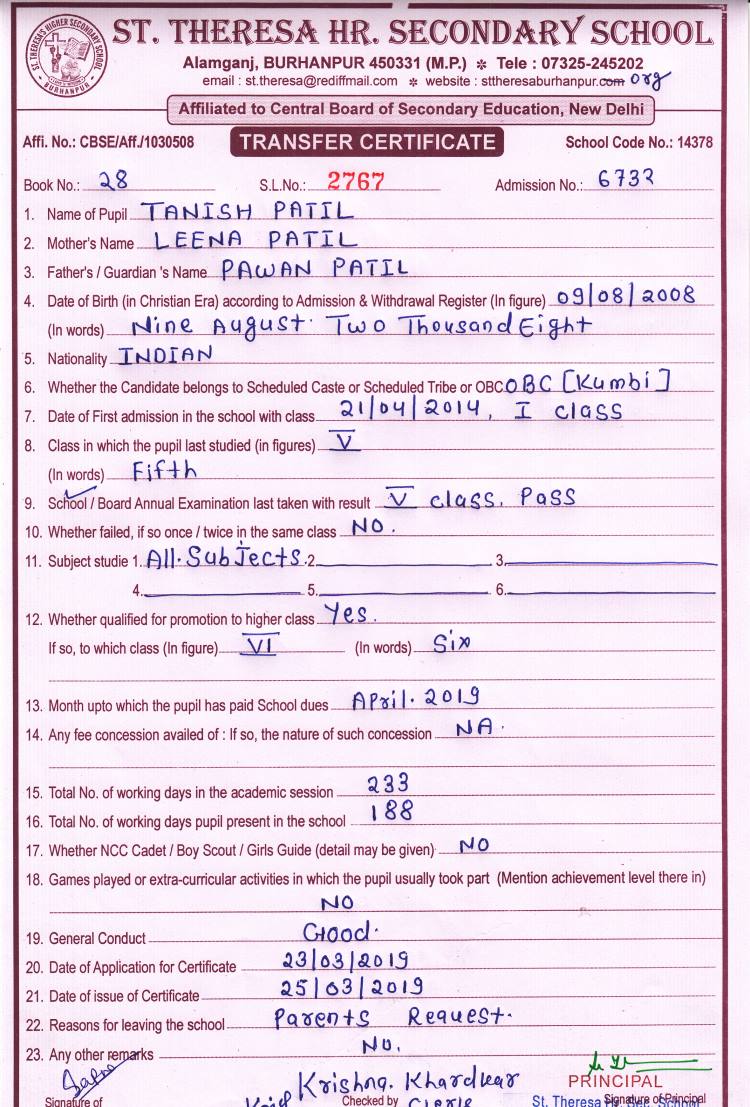 ST. THERESA'S HIGHER SECONDARY SCHOOL
BURHANPUR
ST. THERESA HR. SECONDARY SCHOOL
Alamganj, BURHANPUR 450331 (M.P.) * Tele : 07325-245202
email : st.theresa@rediffmail.com * website : sttheresaburhanpur.com org
Affiliated to Central Board of Secondary Education, New Delhi
Affi. No.: CBSE/Aff./1030508 TRANSFER CERTIFICATE School Code No.: 14378
Book No.: 28 S.L.No.: 2767 Admission No.: 6732
1. Name of Pupil TANISH PATIL
2. Mother's Name LEENA PATIL
3. Father's / Guardian 's Name PAWAN PATIL
4. Date of Birth (in Christian Era) according to Admission & Withdrawal Register (In figure) 09/08/2008
(In words) Nine August. Two Thousand Eight
5. Nationality INDIAN
6. Whether the Candidate belongs to Scheduled Caste or Scheduled Tribe or OBC OBC [Kumbi]
7. Date of First admission in the school with class 21/04/2014, I class
8. Class in which the pupil last studied (in figures) V
(In words) Fifth
9. School / Board Annual Examination last taken with result V class. Pass
10. Whether failed, if so once / twice in the same class NO.
11. Subject studie 1. All. Subjects. 2. 3.
4. 5. 6.
12. Whether qualified for promotion to higher class Yes.
If so, to which class (In figure) VI (In words) Six
13. Month upto which the pupil has paid School dues April. 2019
14. Any fee concession availed of : If so, the nature of such concession NA.
15. Total No. of working days in the academic session 233
16. Total No. of working days pupil present in the school 188
17. Whether NCC Cadet / Boy Scout / Girls Guide (detail may be given) NO
18. Games played or extra-curricular activities in which the pupil usually took part (Mention achievement level there in)
NO
19. General Conduct Good.
20. Date of Application for Certificate 23/03/2019
21. Date of issue of Certificate 25/03/2019
22. Reasons for leaving the school Parents Request.
23. Any other remarks No.
Krishna. Khardkar
PRINCIPAL
Signature of Checked by Clerk St. Theresa Hr. Sec. School
Signature of Principal